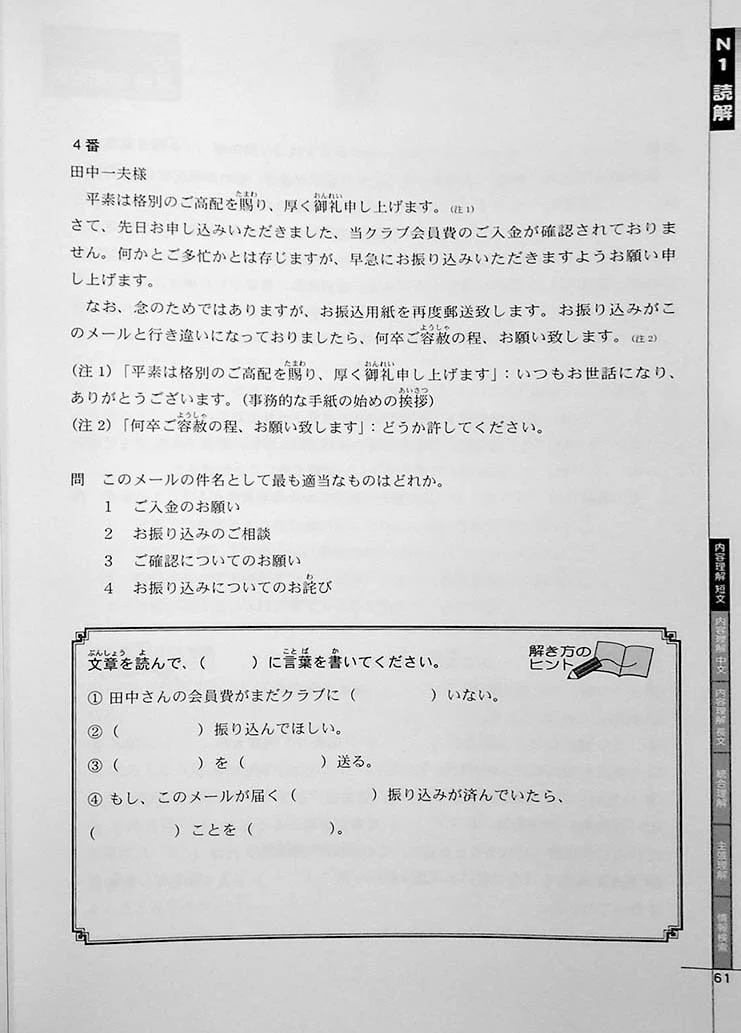 N1 読解
4番
田中一夫様
平素は格別のご高配を賜り、厚く御礼申し上げます。(注1)
さて、先日お申し込みいただきました、当クラブ会員費のご入金が確認されておりま
せん。何かとご多忙かとは存じますが、早急にお振り込みいただきますようお願い申
し上げます。
なお、念のためではありますが、お振込用紙を再度郵送致します。お振り込みがこ
のメールと行き違いになっておりましたら、何卒ご容赦の程、お願い致します。(注2)
(注1)「平素は格別のご高配を賜り、厚く御礼申し上げます」:いつもお世話になり、
ありがとうございます。(事務的な手紙の始めの挨拶)
(注2)「何卒ご容赦の程、お願い致します」:どうか許してください。
問 このメールの件名として最も適当なものはどれか。
1 ご入金のお願い
2 お振り込みのご相談
3 ご確認についてのお願い
4 お振り込みについてのお詫び
文章を読んで、( )に言葉を書いてください。
解き方の
ヒント
① 田中さんの会員費がまだクラブに( )いない。
②( )振り込んでほしい。
③( )を( )送る。
④ もし、このメールが届く( )振り込みが済んでいたら、
( )ことを( )。
内容理解 短文
内容理解 中文
内容理解 長文
統合理解
主張理解
情報検索
61